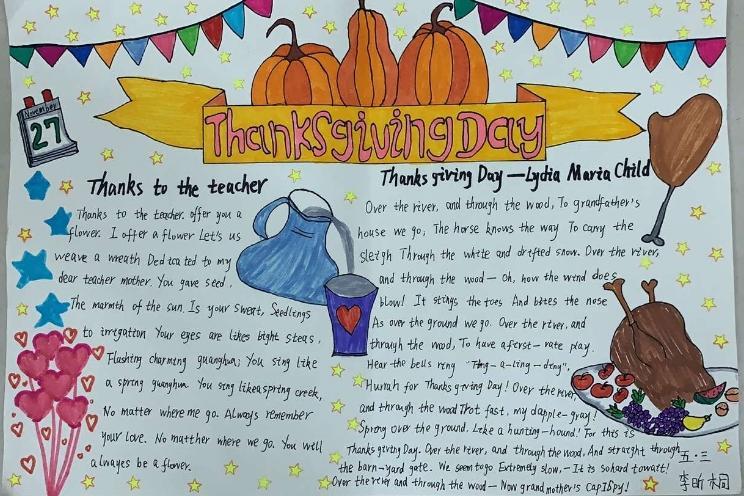 November
27
Thanksgiving Day
Thanks to the teacher
Thanks to the teacher. offer you a
flower. I offer a flower Let's us
weave a wreath Dedicated to my
dear teacher mother. You gave seed,
The marmth of the sun, Is your sweat, Seedlings
to irrgation Your eyes are likes bight stears,
Flashing charming guanghua; You sing like
a spring guanghua. You sing like a spring creek,
No matter where me go. Always remember
your love. No matther where we go. You will
always be a flover.
Thanks giving Day — Lydia Maria Child
Over the river, and through the wood, To grandfather's
house we go; The horse knows the way To carry the
sleigh Through the white and drifted snow. Over the river,
and through the wood — Oh, how the wind does
blow! It stings the toes And bites the nose
As over the ground we go. Over the river, and
through the wood, To have a first-rate play.
Hear the bells ring "Ting-a-ling-ding",
Hurrah for Thanks giving Day! Over the river,
and through the wood Trot fast, my dapple-gray!
Spring over the ground, Like a hunting-hound! For this is
Thanks giving Day. Over the river, and through the wood, And straight through
the barn-yard gate. We seem to go Extremely slow, - It is so hard to wait!
Over the river and through the wood — Now grand mother's cap I spy!
五·三
李昕桐